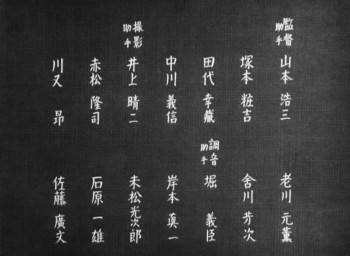 監督助手
山本 浩三
塚本 粧吉
田代 幸藏
中川 義信
撮影助手
井上 晴二
赤松 隆司
川又 昂
老川 元薫
舎川 芳次
調音助手
堀 義臣
岸本 真一
末松光次郎
石原 一雄
佐藤 廣文